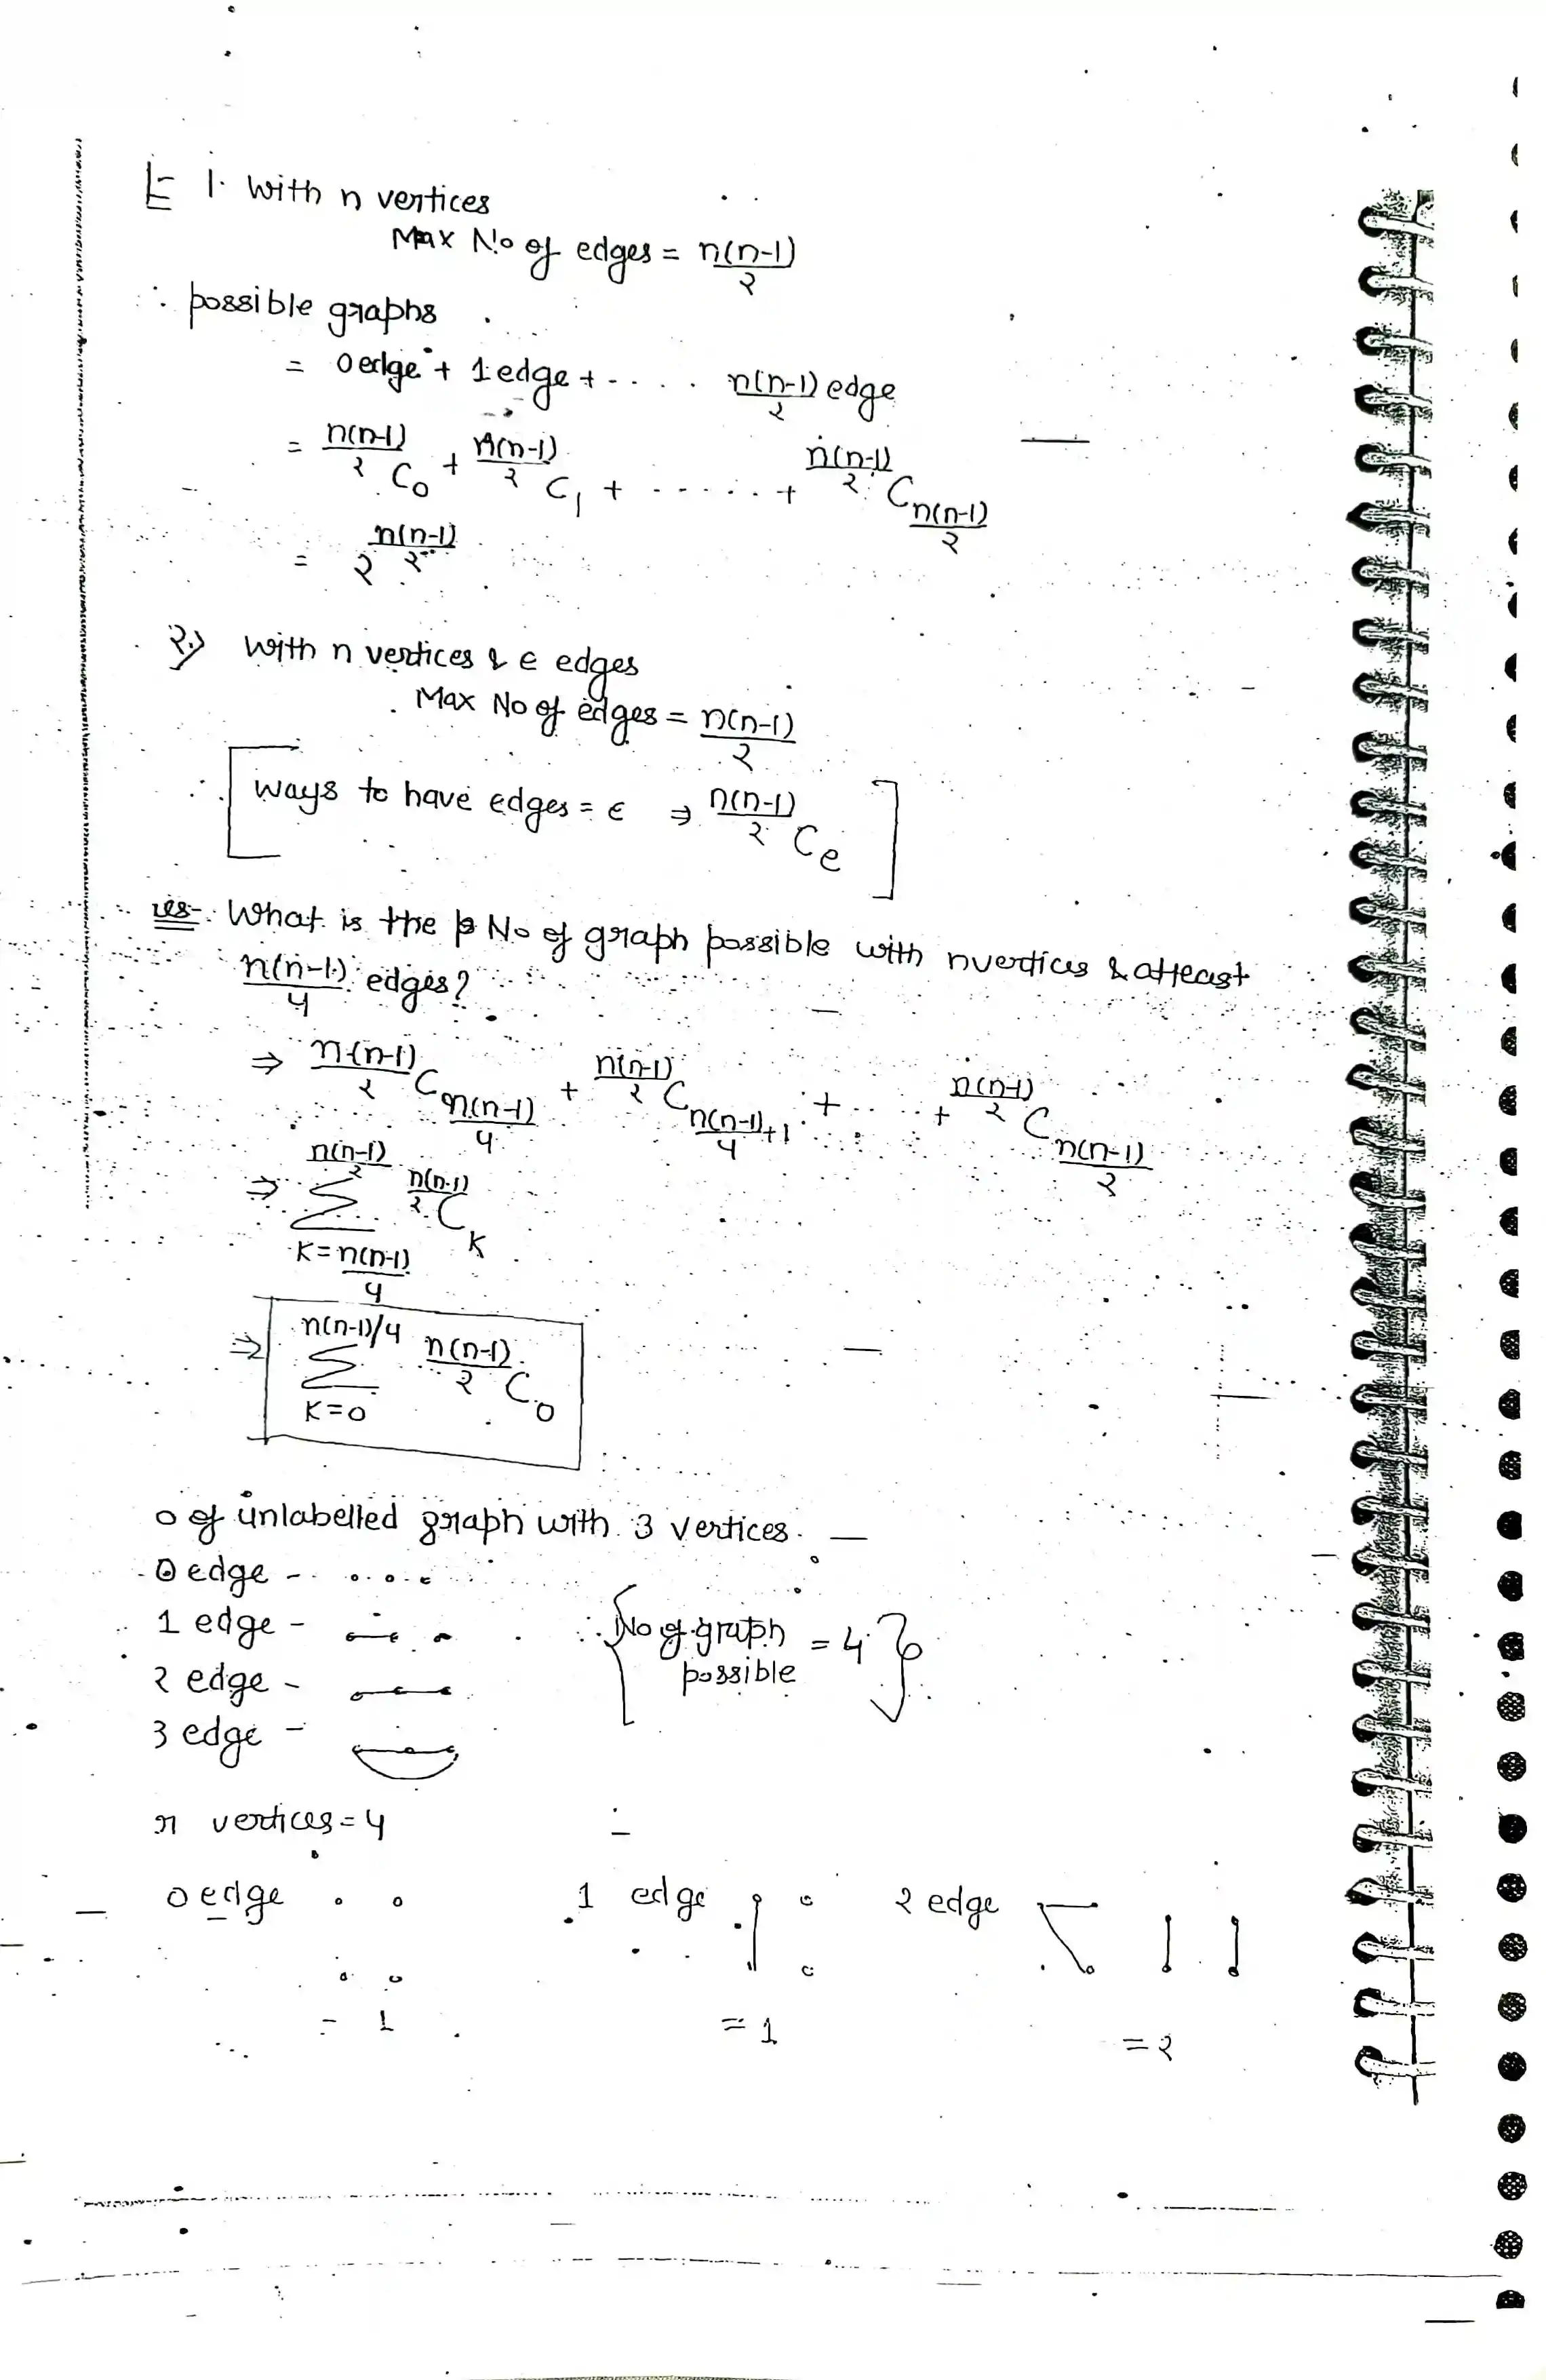 1. With n vertices
Max No of edges = n(n-1)/2
∴ possible graphs
= 0 edge + 1 edge + - . . . n(n-1)/2 edge
= n(n-1)/2 C0 + n(n-1)/2 C1 + - - - . . . + n(n-1)/2 C n(n-1)/2
= 2 n(n-1)/2
2.) With n vertices & e edges
Max No of edges = n(n-1)/2
∴ [ways to have edges = e ⇒ n(n-1)/2 Ce]
ues- What is the No of graph possible with n vertices & atleast
n(n-1)/4 edges?
⇒ n(n-1)/2 C n(n-1)/4 + n(n-1)/2 C n(n-1)/4+1 + . . . . + n(n-1)/2 C n(n-1)/2
⇒ n(n-1)/2 Σ K=n(n-1)/4 n(n-1)/2 CK
⇒ n(n-1)/4 Σ K=0 n(n-1)/2 C0
o of unlabelled graph with 3 vertices.
0 edge -
1 edge - ∴ {No of graph possible = 4}
2 edge -
3 edge -
r vertices = 4
0 edge 1 edge 2 edge
= 1 = 1 = 2